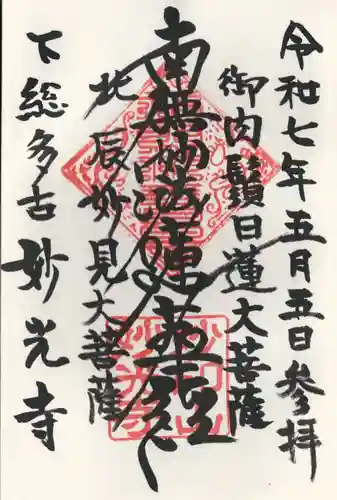 令和七年五月五日参拝
御肉鬚日蓮大菩薩
南無妙法蓮華経
北辰妙見大菩薩
下総多古妙光寺